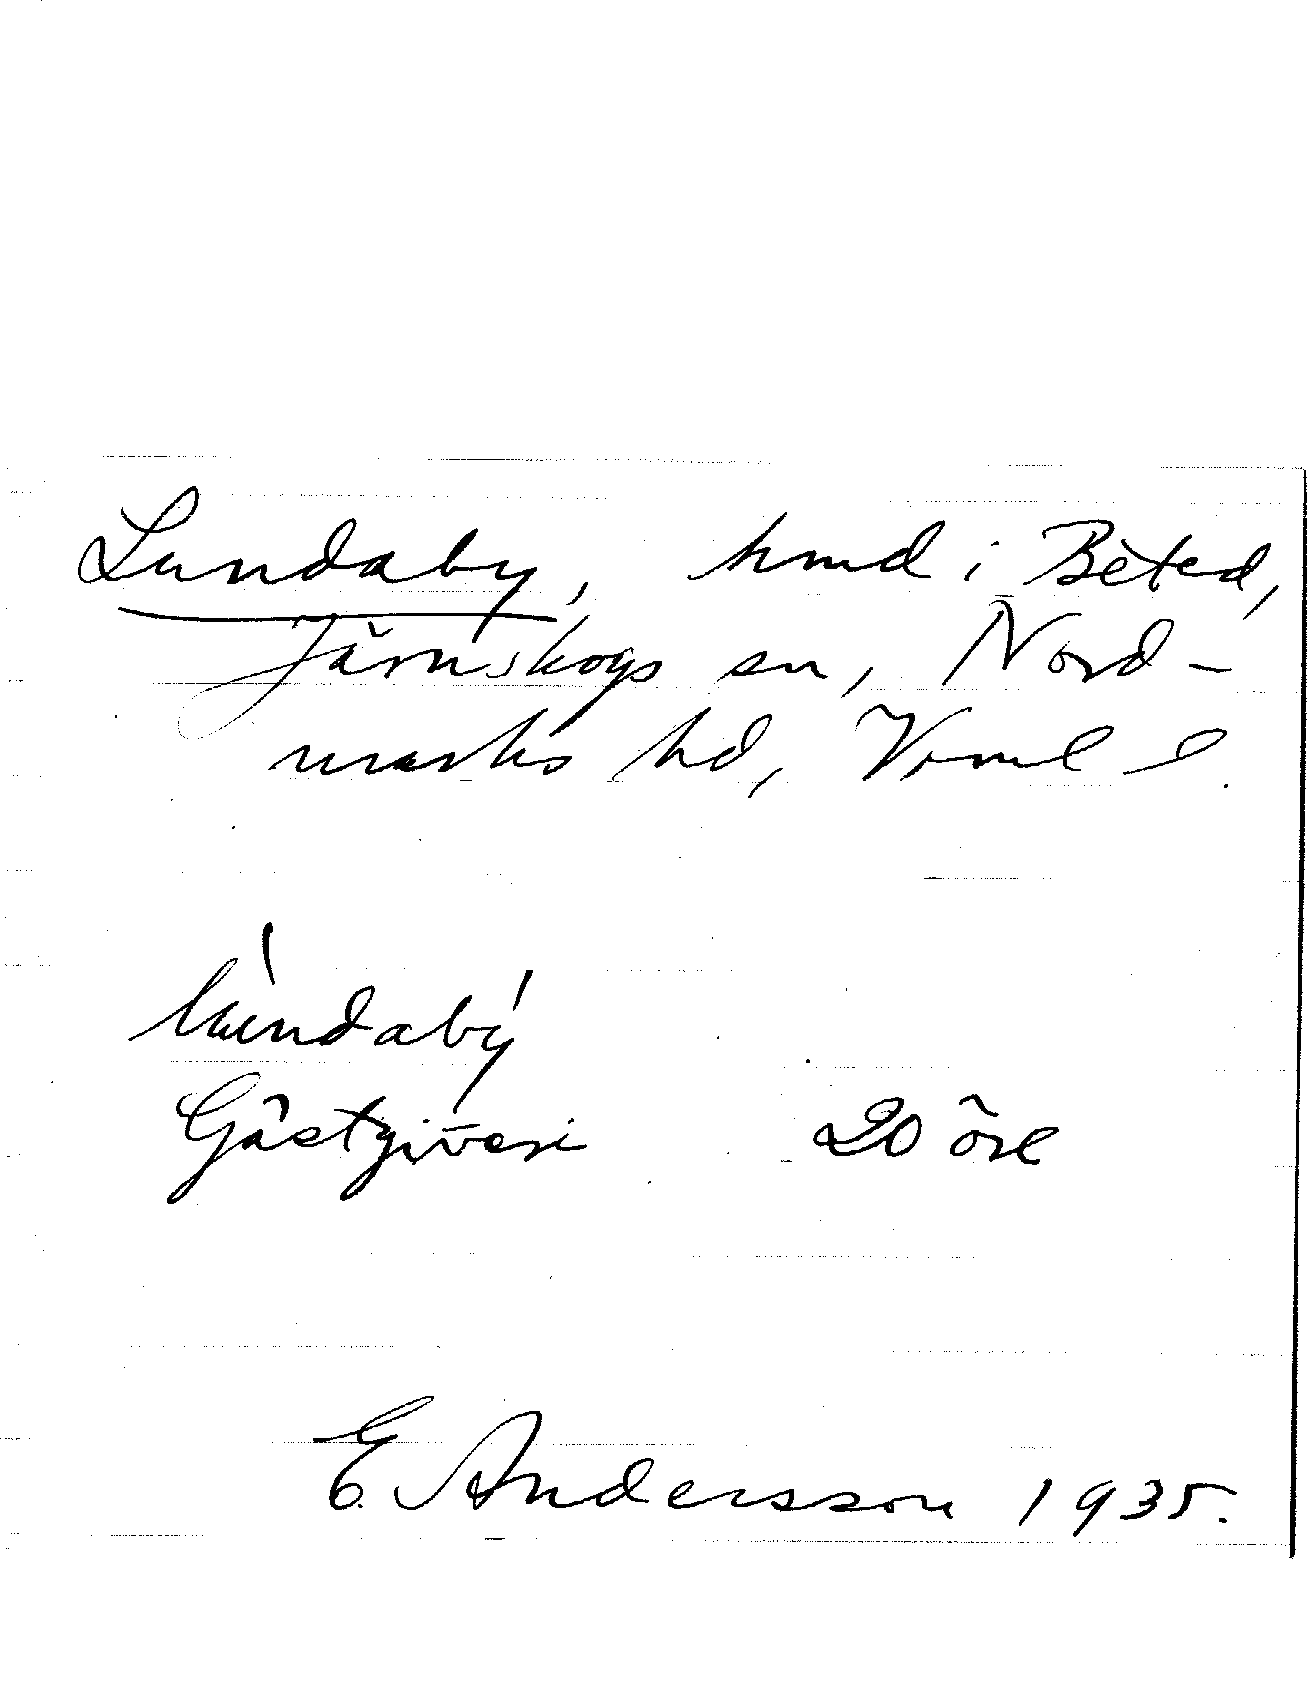 Lundaby, hmd i Beted,
Järnskogs sn, Nord-
marks hd, Vrml
lu̇ndabý
Gästgiveri 20 öre
E. Andersson 1935.